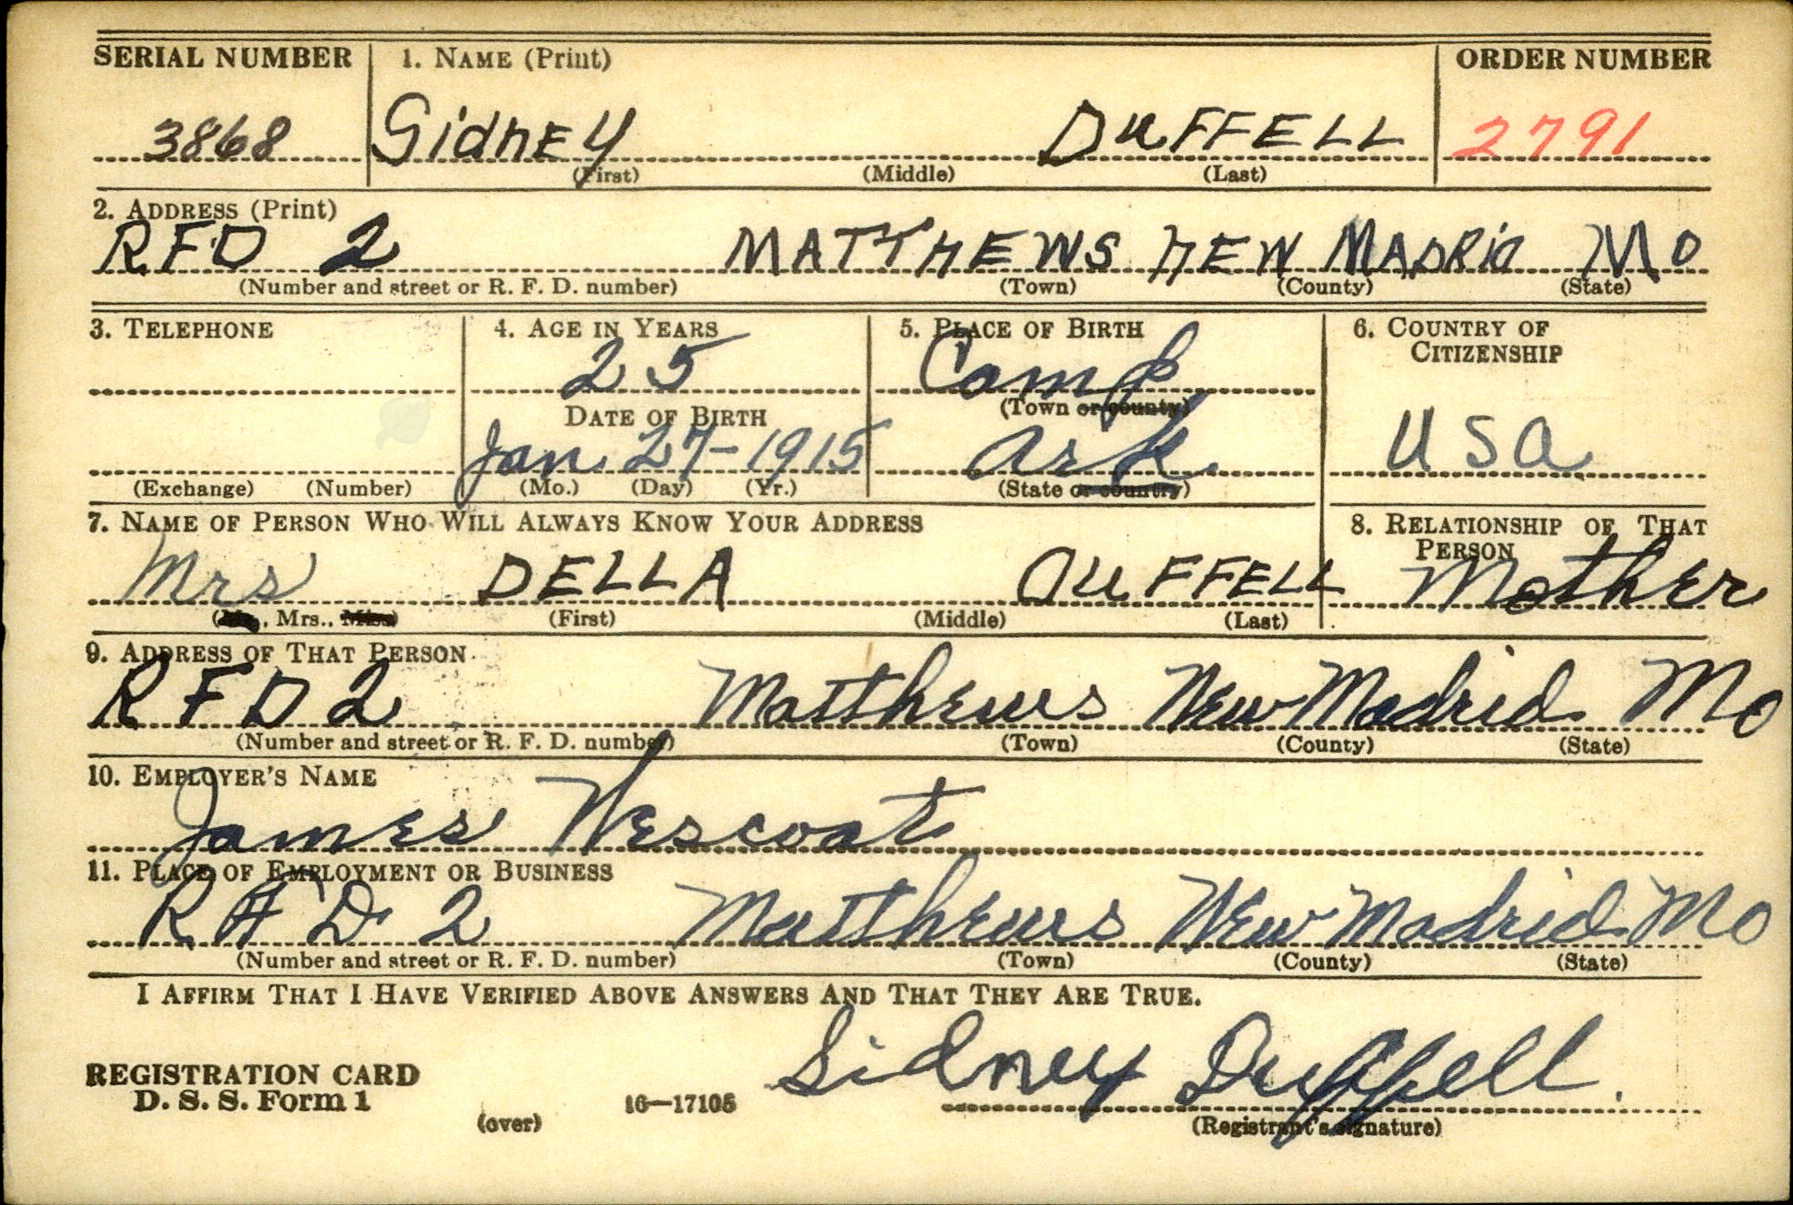 SERIAL NUMBER 1. NAME (Print) ORDER NUMBER
3868 Sidney DUFFELL 2791
(First) (Middle) (Last)
2. ADDRESS (Print)
RFD 2 MATTHEWS NEW MADRID MO
(Number and street or R. F. D. number) (Town) (County) (State)
3. TELEPHONE 4. AGE IN YEARS 5. PLACE OF BIRTH 6. COUNTRY OF CITIZENSHIP
25 Camp
DATE OF BIRTH (Town or county)
Jan. 27-1915 Ark. USA
(Exchange) (Number) (Mo.) (Day) (Yr.) (State or country)
7. NAME OF PERSON WHO WILL ALWAYS KNOW YOUR ADDRESS 8. RELATIONSHIP OF THAT PERSON
Mrs DELLA DUFFELL Mother
(Mr., Mrs., Miss) (First) (Middle) (Last)
9. ADDRESS OF THAT PERSON
RFD 2 Matthews New Madrid Mo
(Number and street or R. F. D. number) (Town) (County) (State)
10. EMPLOYER'S NAME
James Wescoat
11. PLACE OF EMPLOYMENT OR BUSINESS
RFD 2 Matthews New Madrid Mo
(Number and street or R. F. D. number) (Town) (County) (State)
I AFFIRM THAT I HAVE VERIFIED ABOVE ANSWERS AND THAT THEY ARE TRUE.
Sidney Duffell.
REGISTRATION CARD
D. S. S. Form 1 (over) 16—17105 (Registrant's signature)